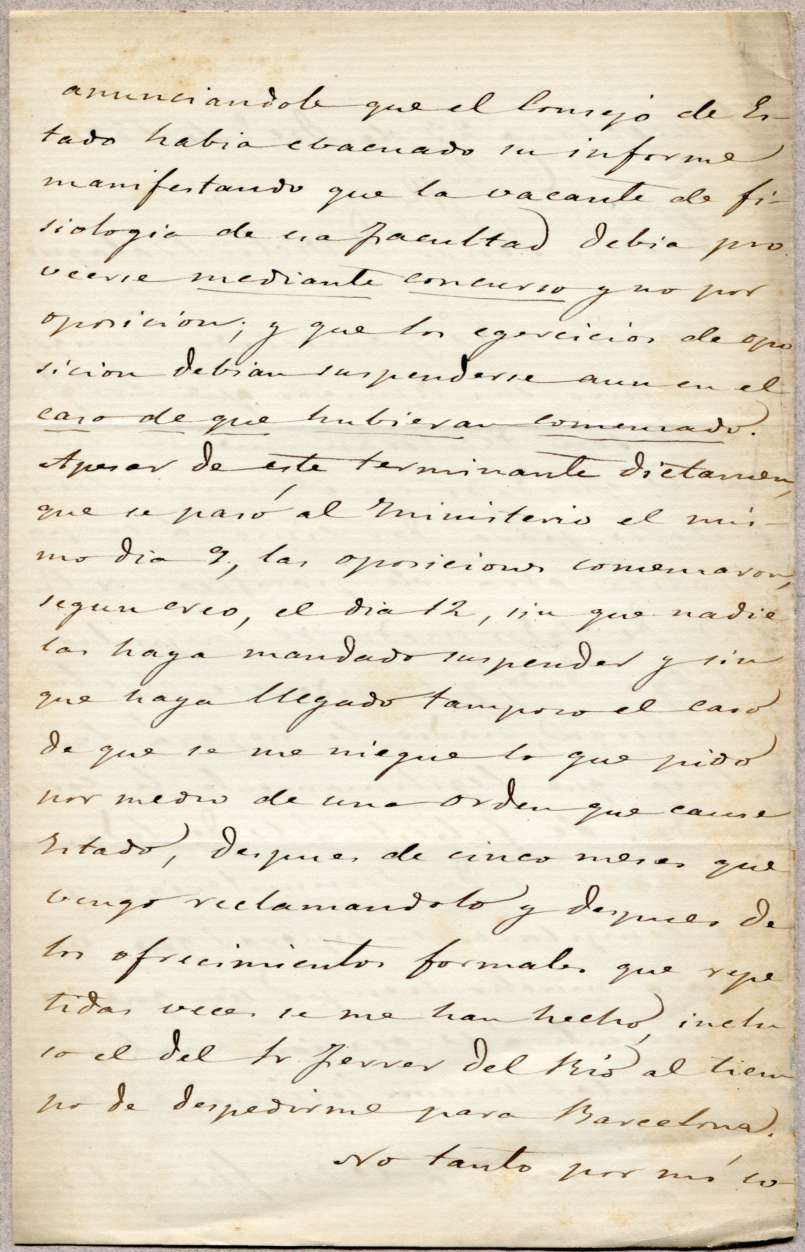 anunciandole que el Consejo de Es-
tado habia evacuado su informe
manifestando que la vacante de fi-
siologia de esa facultad debia pro
veerse mediante concurso y no por
oposicion; y que los egercicios de opo
sicion debian suspenderse aun en el
caso de que hubieran comenzado.
Apesar de este terminante dictamen,
que se pasó al Ministerio el mis-
mo dia 9, las oposiciones comenzaron,
segun creo, el dia 12, sin que nadie
las haya mandado suspender y sin
que haya llegado tampoco el caso
de que se me niegue lo que pido
por medio de una orden que cause
Estado, despues de cinco meses que
vengo reclamandolo y despues de
los ofrecimientos formales que repe
tidas veces se me han hecho, inclu
so el del Sr Ferrer del Rio al tiem
po de despedirme para Barcelona.
No tanto por mí co